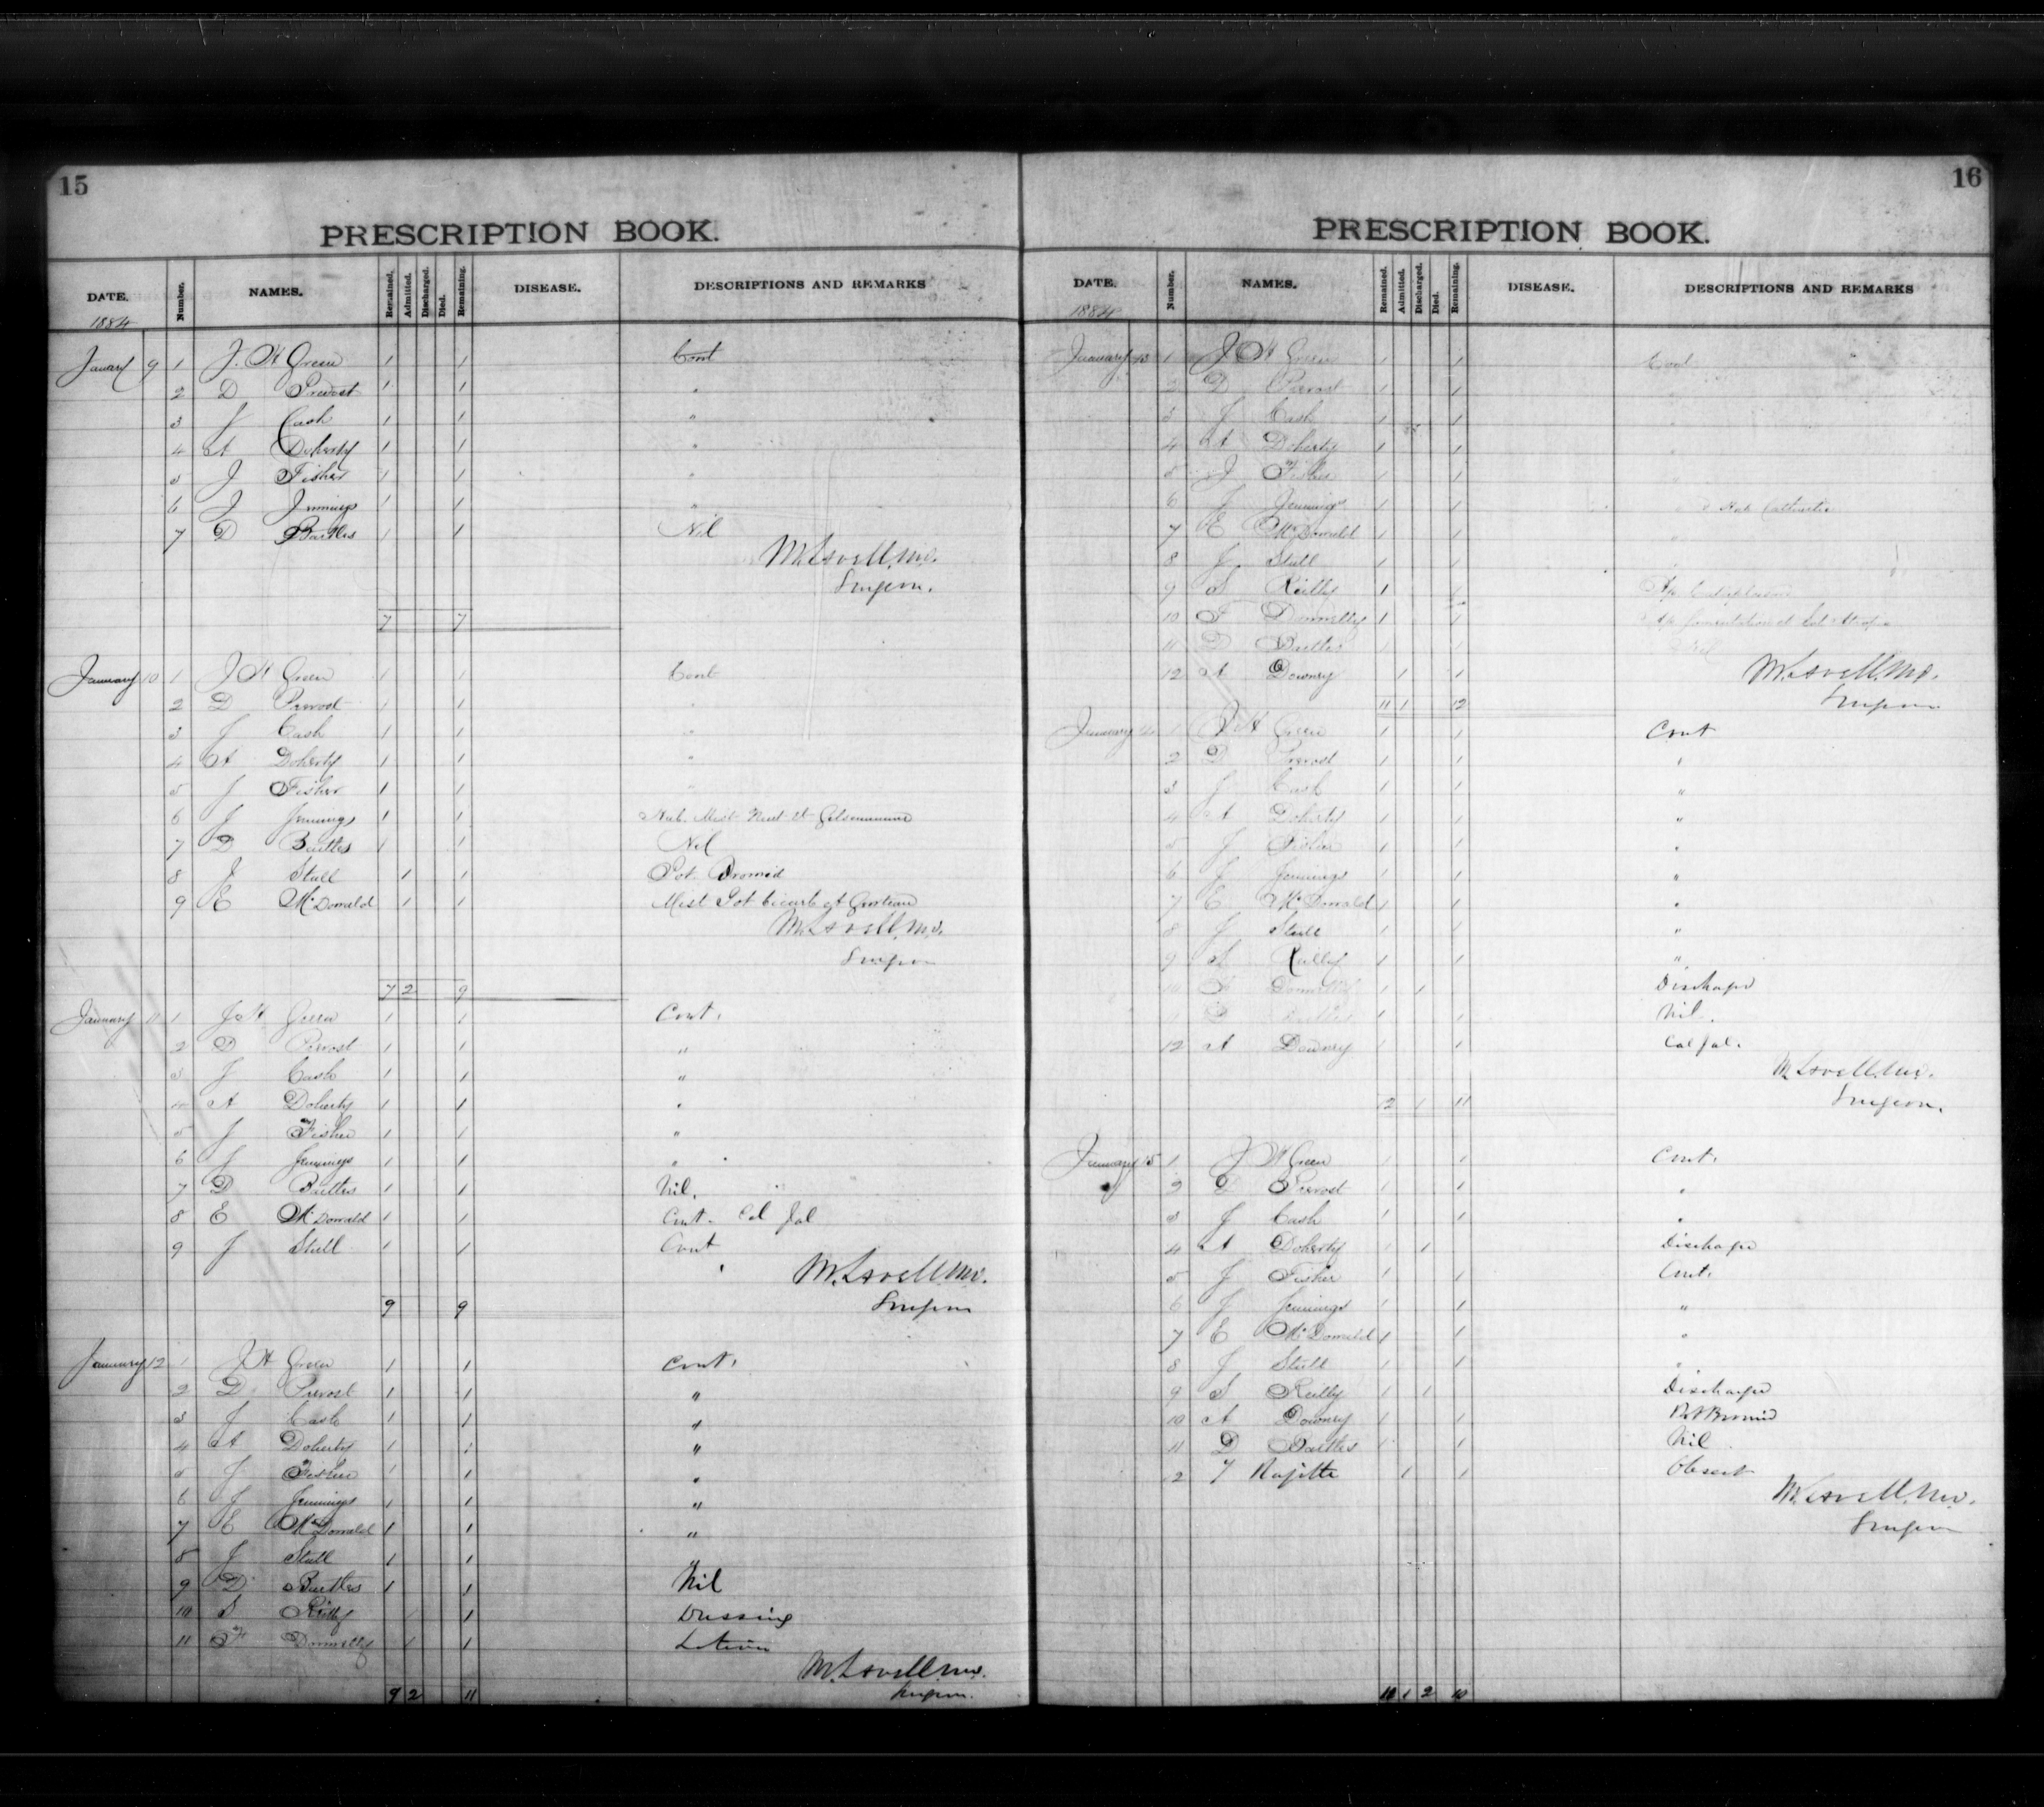 15
PRESCRIPTION BOOK.
DATE. Number. NAMES. Remained. Admitted. Discharged. Died. Remaining. DISEASE. DESCRIPTIONS AND REMARKS
1884
January 9 1 J. H Green 1 1 Cont
2 D Prevost 1 1 "
3 J Cash 1 1 "
4 A Doherty 1 1 "
5 J Fisher 1 1 "
6 J Jennings 1 1 "
7 D Bartles 1 1 Nil
M. Lavell, M.D.
Surgeon.
7 7
January 10 1 J H Green 1 1 Cont
2 D Prevost 1 1 "
3 J Cash 1 1 "
4 A Doherty 1 1 "
5 J Fisher 1 1 "
6 J Jennings 1 1
7 D Bartles 1 1 Nil
8 J Stull 1 1 Pot. Bromid
9 E McDonald 1 1 Mist Pot bicarb et
M. Lavell, M.D.
Surgeon
7 2 9
January 11 1 J H Green 1 1 Cont.
2 D Prevost 1 1 "
3 J Cash 1 1 "
4 A Doherty 1 1 "
5 J Fisher 1 1 "
6 J Jennings 1 1 "
7 D Bartles 1 1 Nil.
8 E McDonald 1 1 Cont. Cal Jal
9 J Stull 1 1 Cont
M. Lavell, M.D.
Surgeon
9 9
January 12 1 J H Green 1 1 Cont.
2 D Prevost 1 1 "
3 J Cash 1 1 "
4 A Doherty 1 1 "
5 J Fisher 1 1 "
6 J Jennings 1 1 "
7 E McDonald 1 1 "
8 J Stull 1 1 "
9 D Bartles 1 1 Nil
10 S Reilly 1 1 Dressing
11 F Donnelly 1 1 Lotion
M. Lavell, M.D.
Surgeon.
9 2 11
16
PRESCRIPTION BOOK.
DATE. Number. NAMES. Remained. Admitted. Discharged. Died. Remaining. DISEASE. DESCRIPTIONS AND REMARKS
1884
January 13 1 J H Green 1 1 Cont
2 D Prevost 1 1
3 J Cash 1 1
4 A Doherty 1 1
5 J Fisher 1 1
6 J Jennings 1 1
7 E McDonald 1 1 "
8 J Stull 1 1
9 S Reilly 1 1 Ap Cataplasm
10 F Donnelly 1 1 Ap fomentation et
11 D Bartles 1 1 Nil
12 A Downey 1 1
M. Lavell, M.D.
Surgeon
11 1 12
January 14 1 J H Green 1 1 Cont
2 D Prevost 1 1 "
3 J Cash 1 1 "
4 A Doherty 1 1 "
5 J Fisher 1 1 "
6 J Jennings 1 1 "
7 E McDonald 1 1 "
8 J Stull 1 1 "
9 S Reilly 1 1 "
10 F Donnelly 1 1 Discharge
11 D Bartles 1 1 Nil.
12 A Downey 1 1 Cal Jal.
M. Lavell, M.D.
Surgeon.
12 1 11
January 15 1 J H Green 1 1 Cont.
2 D Prevost 1 1 "
3 J Cash 1 1 "
4 A Doherty 1 1 Discharge
5 J Fisher 1 1 Cont.
6 J Jennings 1 1 "
7 E McDonald 1 1 "
8 J Stull 1 1 "
9 S Reilly 1 1 Discharge
10 A Downey 1 1 Pot Bromid
11 D Bartles 1 1 Nil
2 1 1
M. Lavell, M.D.
Surgeon
11 1 2 10